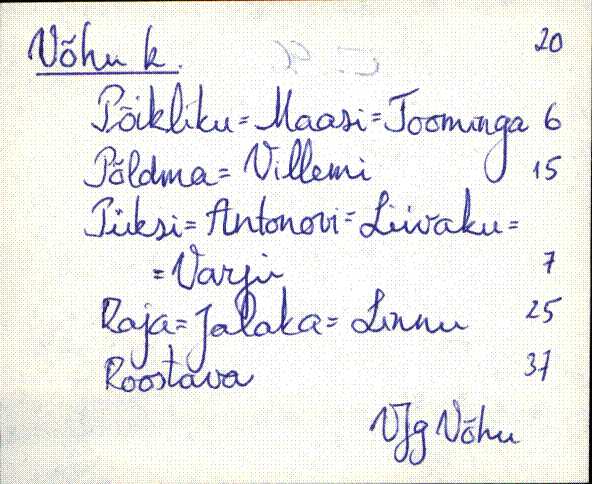 Võhu k. 20
Põikliku = Maasi = Toominga 6
Põldma = Villemi 15
Püksi = Antonovi = Liivaku =
= Varju 7
Raja = Jalaka = Linnu 25
Roostava 37
Vjg Võhu